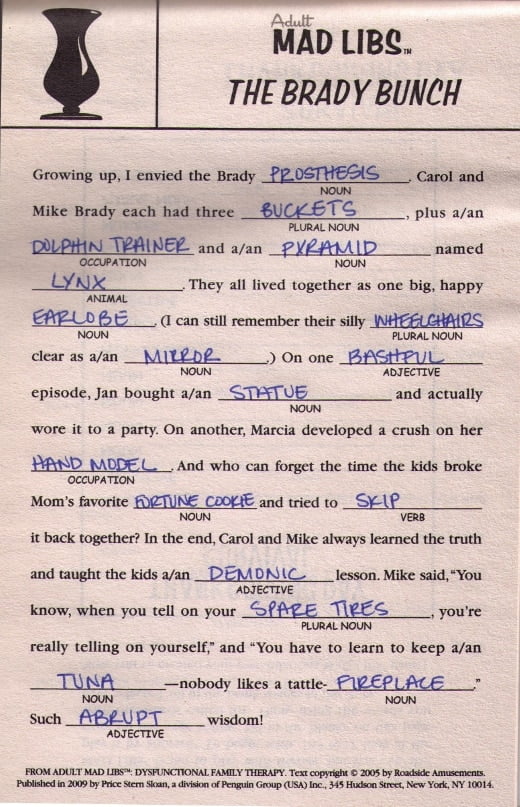 Adult
MAD LIBS™
THE BRADY BUNCH
Growing up, I envied the Brady PROSTHESIS. Carol and
NOUN
Mike Brady each had three BUCKETS, plus a/an
PLURAL NOUN
DOLPHIN TRAINER and a/an PYRAMID named
OCCUPATION NOUN
LYNX. They all lived together as one big, happy
ANIMAL
EARLOBE. (I can still remember their silly WHEELCHAIRS
NOUN PLURAL NOUN
clear as a/an MIRROR.) On one BASHFUL
NOUN ADJECTIVE
episode, Jan bought a/an STATUE and actually
NOUN
wore it to a party. On another, Marcia developed a crush on her
HAND MODEL. And who can forget the time the kids broke
OCCUPATION
Mom's favorite FORTUNE COOKIE and tried to SKIP
NOUN VERB
it back together? In the end, Carol and Mike always learned the truth
and taught the kids a/an DEMONIC lesson. Mike said, "You
ADJECTIVE
know, when you tell on your SPARE TIRES, you're
PLURAL NOUN
really telling on yourself," and "You have to learn to keep a/an
TUNA—nobody likes a tattle-FIREPLACE."
NOUN NOUN
Such ABRUPT wisdom!
ADJECTIVE
FROM ADULT MAD LIBS™: DYSFUNCTIONAL FAMILY THERAPY. Text copyright © 2005 by Roadside Amusements.
Published in 2009 by Price Stern Sloan, a division of Penguin Group (USA) Inc., 345 Hudson Street, New York, NY 10014.